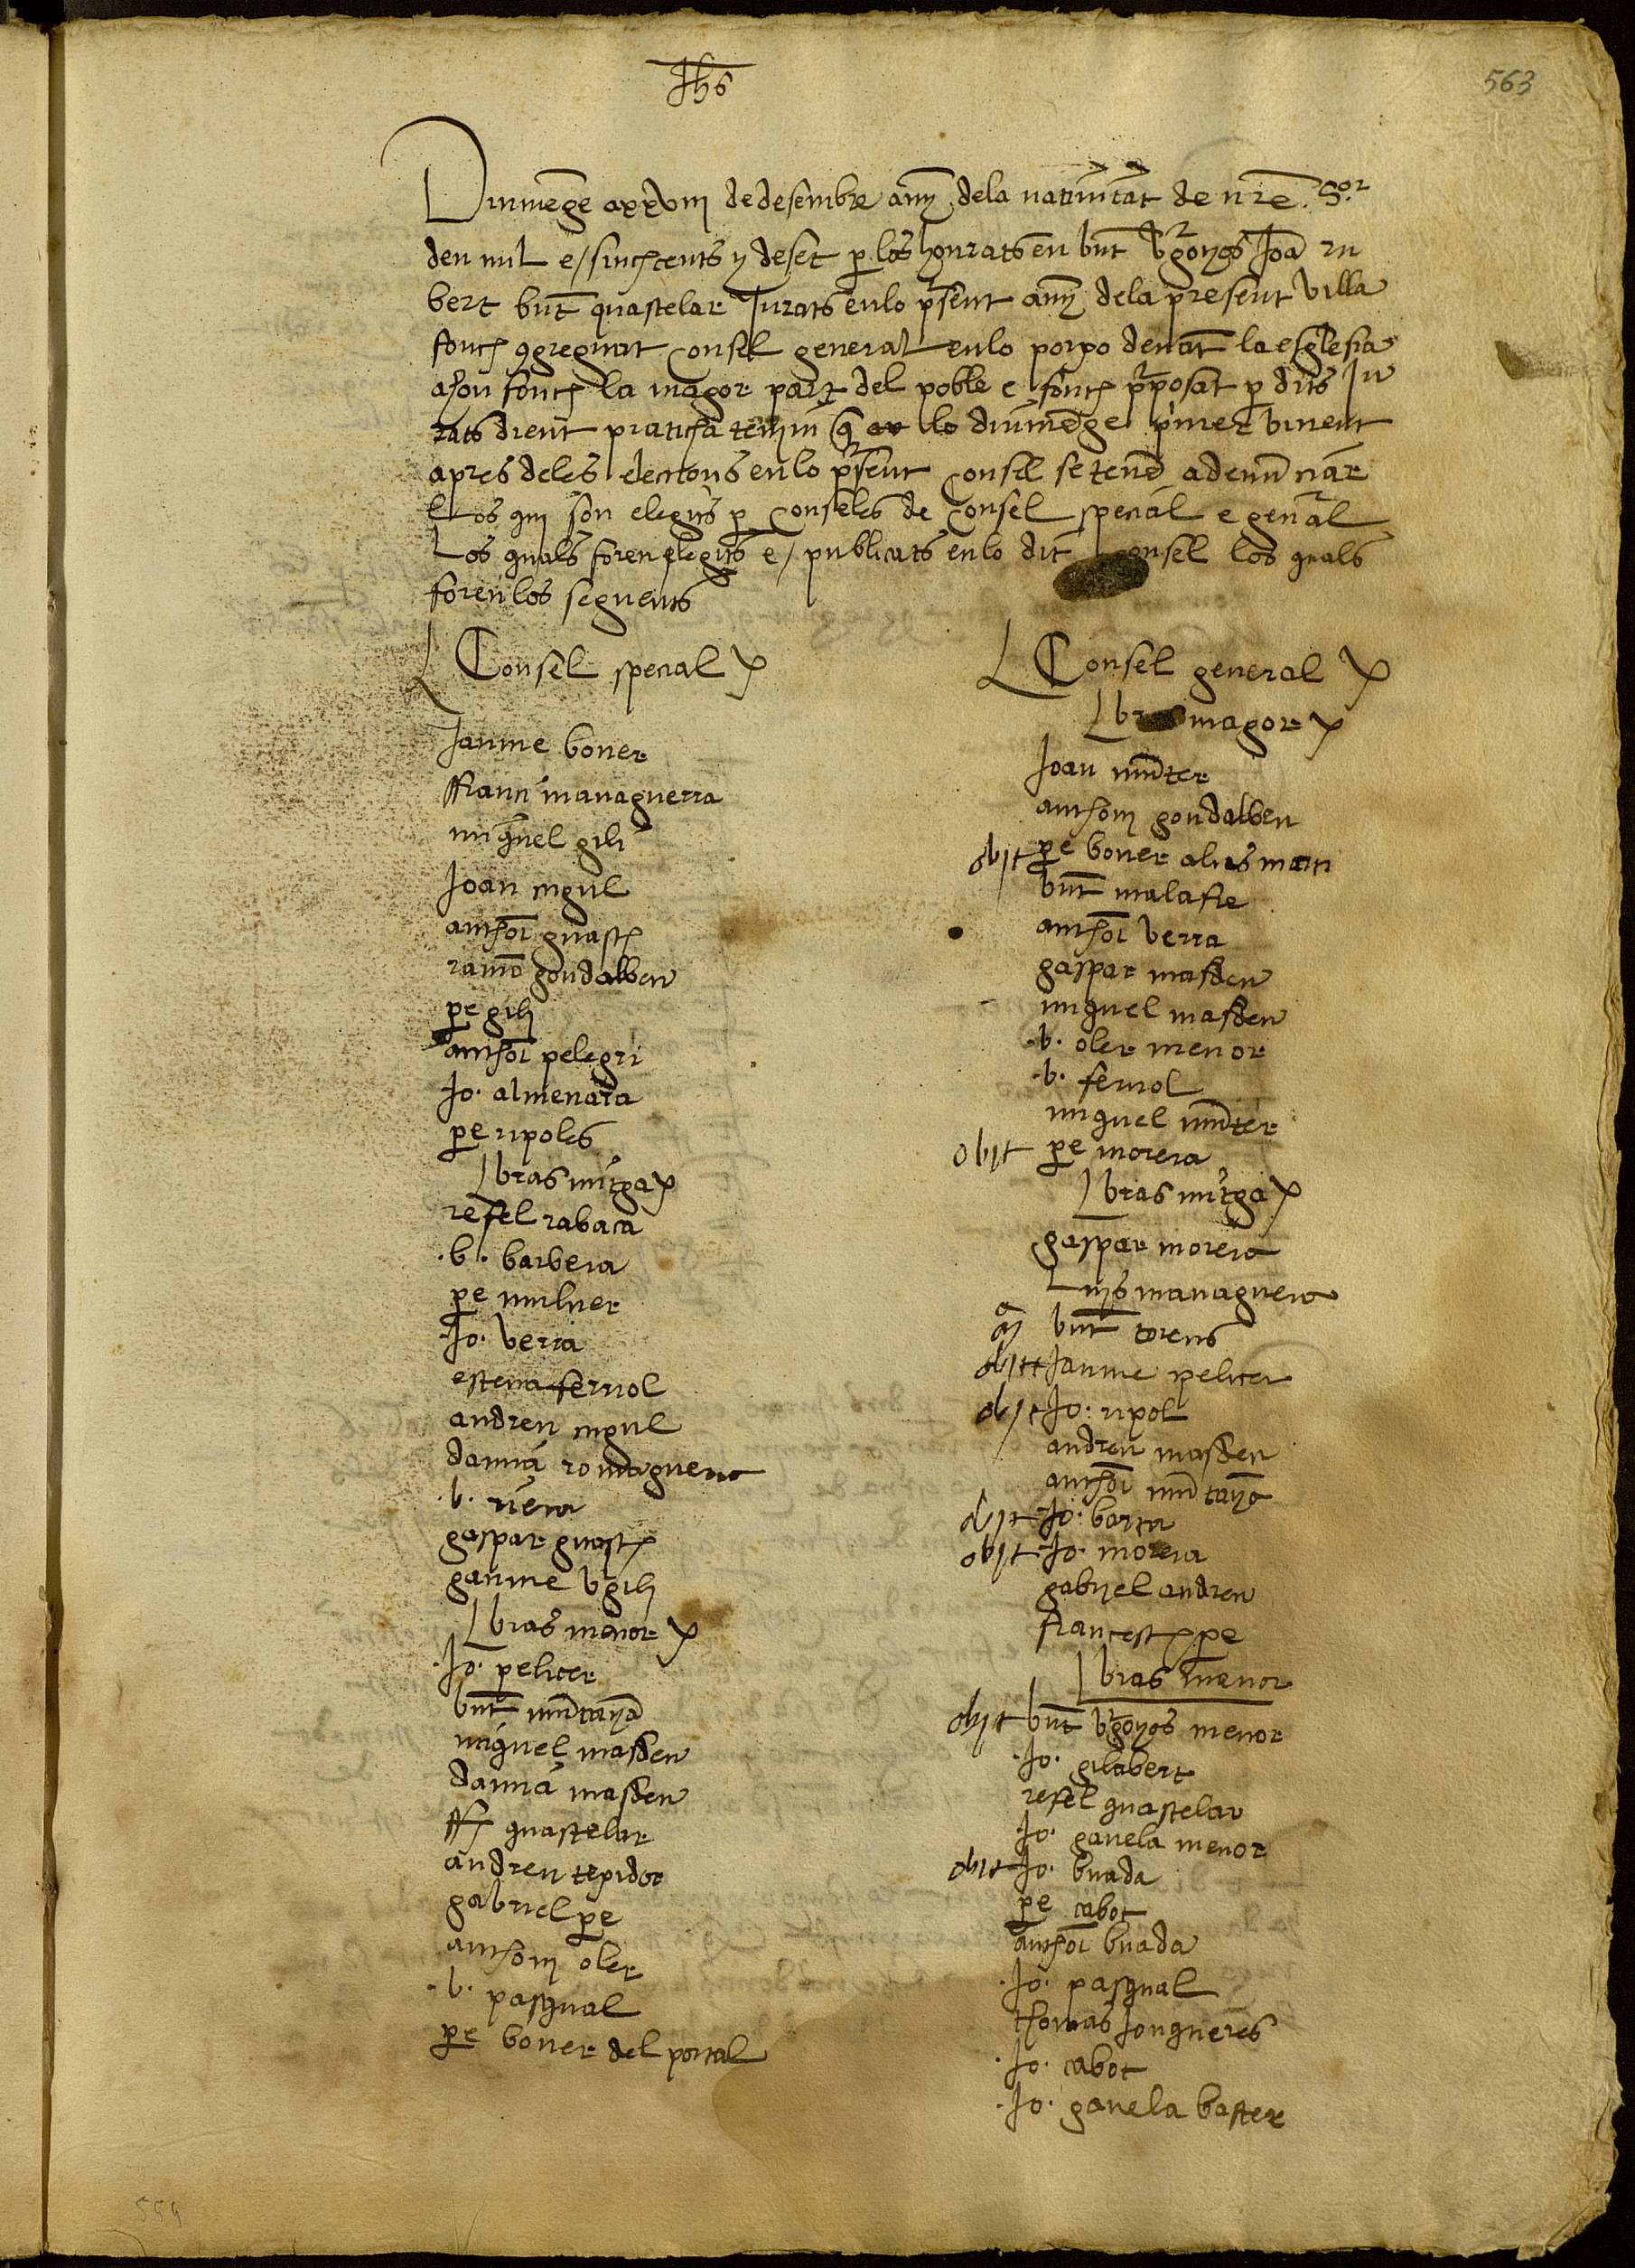 Jhs
563
Dinmēge a xxviii de desembre any dela nativitat de nr̄e Sor
deu mil e / sinchcents y deset p los honrats en bnt̄ brgonyos Joā ru
bert bnt̄ quastelar Jurats en lo pr̄sent any dela present villa
fonch cgreguat consel general en lo porpo denāt la esglesia
ahon fonch la magor part del poble e fonch pr̄posat p dits Ju
rats dient praticha tenim q lo diūmēge primer vinent
apres deles elections en lo pr̄sent consel se tenē a denunciar
los qui son elegits p conseles de consel special e genral
Los quals foren elegits e / publicats en lo dit consel los quals
foren los seguents
Consel special
Jaume bover
ffranci managuerra
miquel gili
Joan mgul
anthoi guasch
ramō goudalbeu
pe gilj
anthoi pelegri
Jo. almenara
pe ripoles
bras mitga
refel rabaca
.b. barbera
pe muluer
.Jo. verra
esteva ferriol
andreu mgul
damia romaguera
.b. riera
gaspar guasch
gaume vgilj
bras menor
.Jo. pelicer
bnt̄ mūtanyā
miquel masdeu
damia masdeu
ff quastelar
andreu texidor
gabriel pe
anthoni oler
.b. pasqual
pe bover del portal
Consel general
bras magor
Joan mūter
anthoni goudalbeu
obit pe bover alias mati
bnt̄ malafre
anthoi verra
gaspar masdeu
miquel masdeu
.b. oler menor
.b. ferriol
miquel mūter
obit pe morera
bras mitga
gaspar morera
Luys managuera
bnt̄ torens
obit Jaume pelicer
obit Jo. ripol
andreu masdeu
anthoi mūtanyā
obit Jo. barca
obit .Jo. morera
gabriel andreu
francesch pe
bras menor
obit bnt̄ brgonyos menor
.Jo. gilabert
refel quastelar
.Jo. gavela menor
obit Jo. buada
pe cabot
anthoi buada
.Jo. pasqual
thomas Jonqueres
.Jo. cabot
.Jo. gavela baster
554